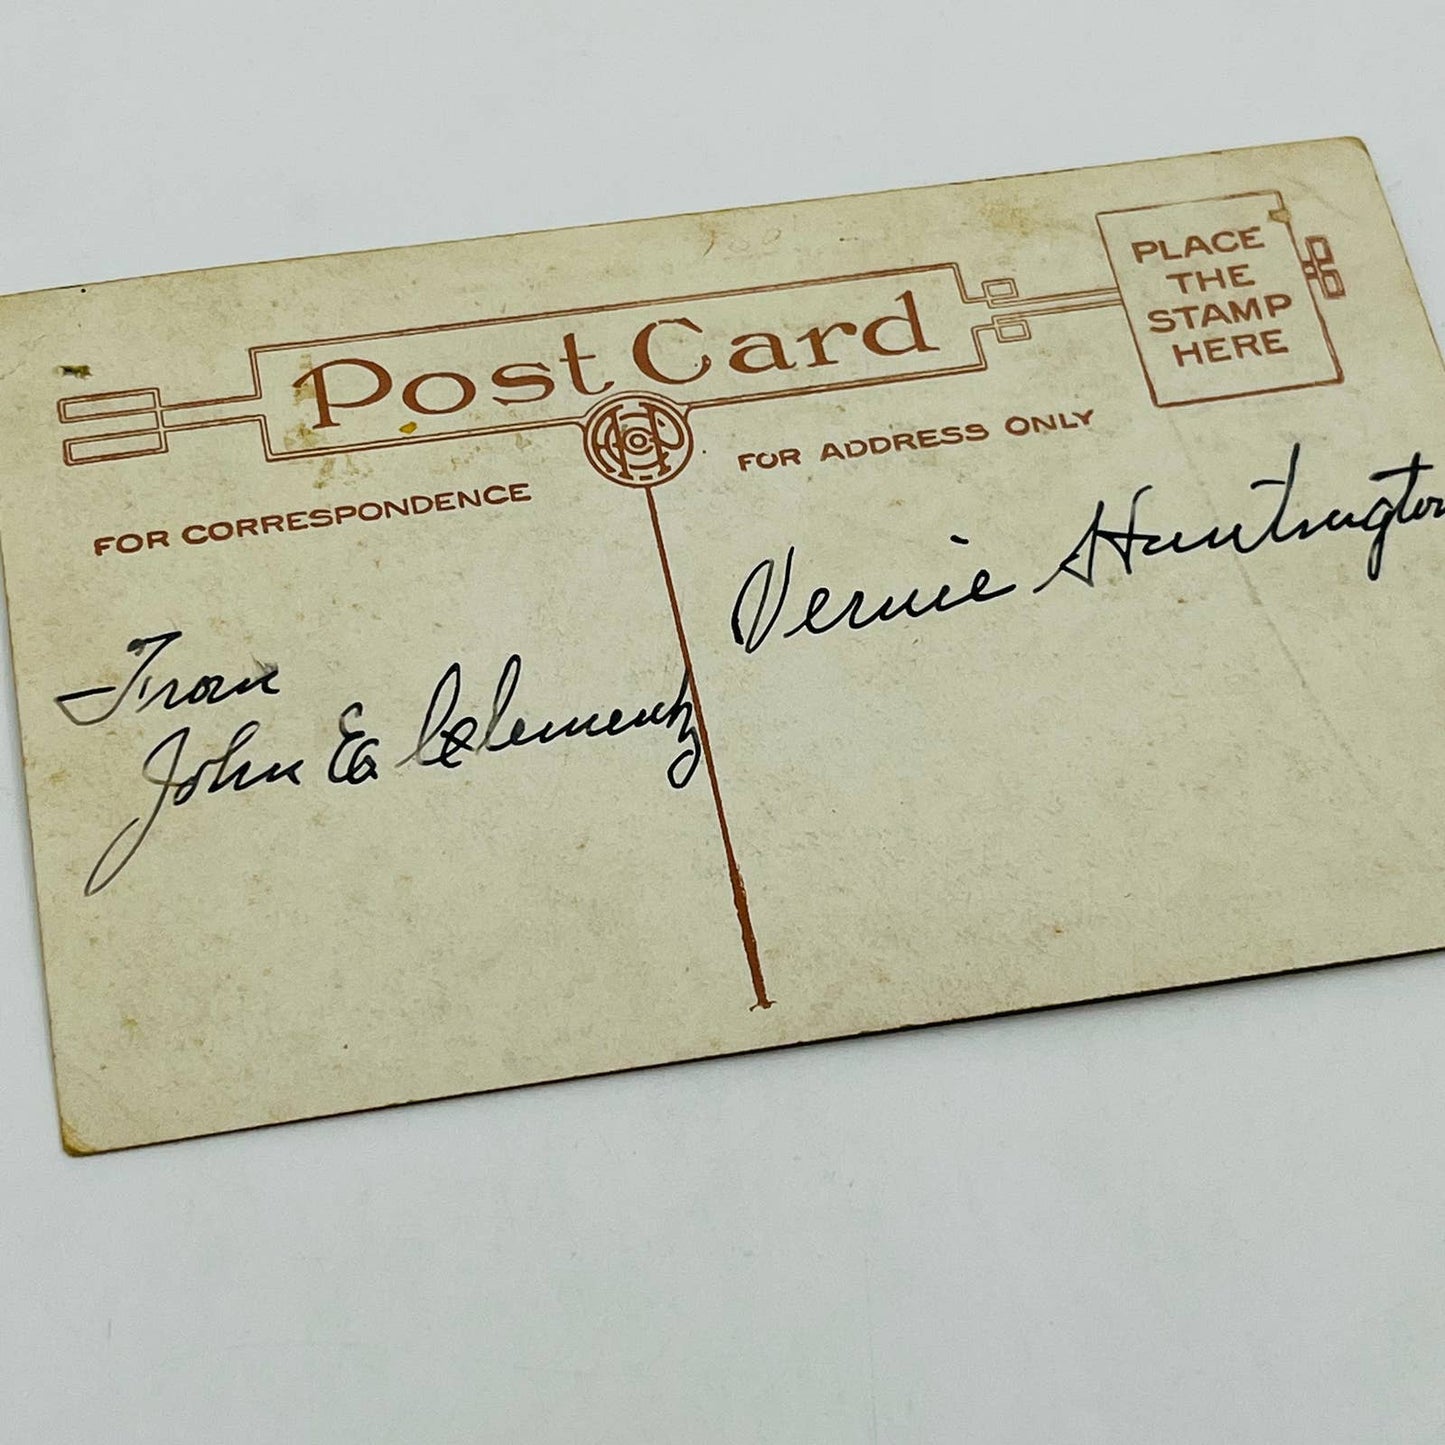 Post Card
PLACE
THE
STAMP
HERE
FOR CORRESPONDENCE
FOR ADDRESS ONLY
From
John E Clementz
Vernie Huntington